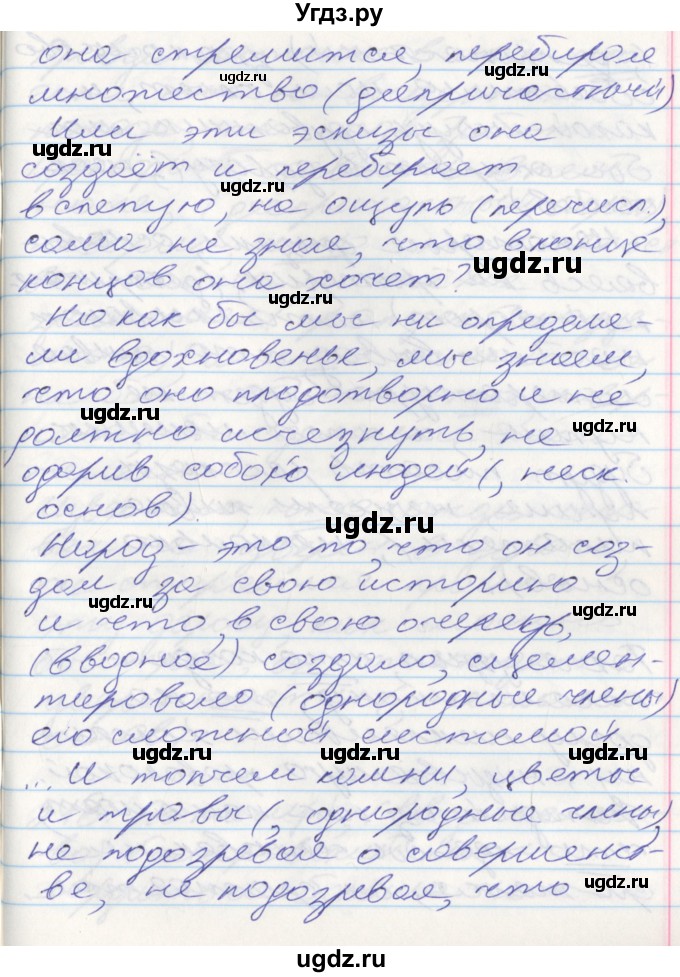 Угдз.ру
она стремится, перебирая
ugdz.ru ugdz.ru
множество (деепричастный)
Или эти эскизы она
ugdz.ru ugdz.ru
создаёт и перебирает
ugdz.ru
вслепую, на ощупь (перечисл.),
сама не зная, что в конце
ugdz.ru
концов она хочет?
ugdz.ru
Но как бы мы ни определя-
ли вдохновенье, мы знаем,
что оно плодотворно и не
ugdz.ru
должно исчезнуть, не
ugdz.ru
одарив собою людей (, неск.
основ).
ugdz.ru
Народ – это то, что он соз-
дал за свою историю
ugdz.ru
и что, в свою очередь,
ugdz.ru
(вводное) создало, сцемен-
тировало (однородные члены)
его сложной системой
ugdz.ru ugdz.ru ugdz.ru
... И топчем камни, цветы
и травы (, однородные члены),
не подозревая о совершенст-
ве, не подозревая, что
ugdz.ru
ugdz.ru